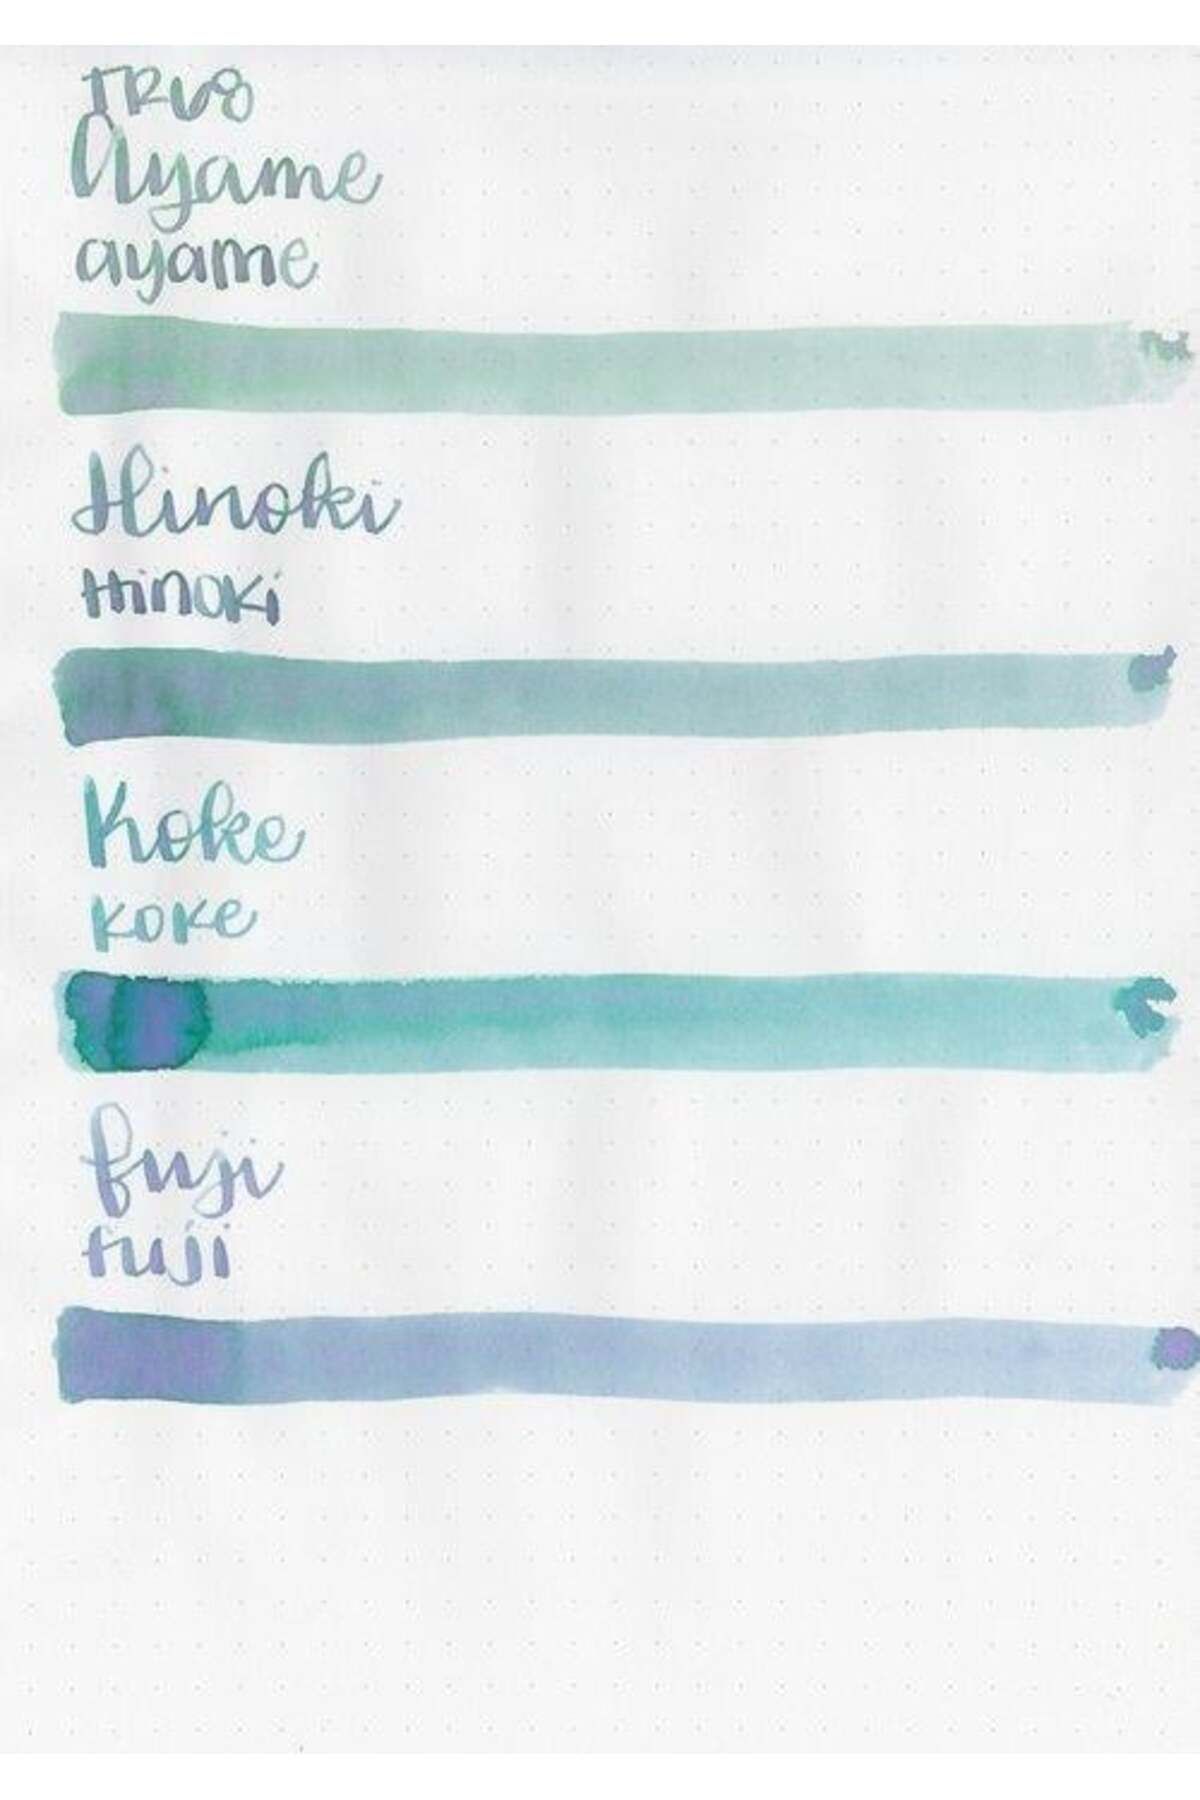 TR68
Ayame
ayame
Hinoki
HinoKi
Koke
KoKe
fuji
fuji